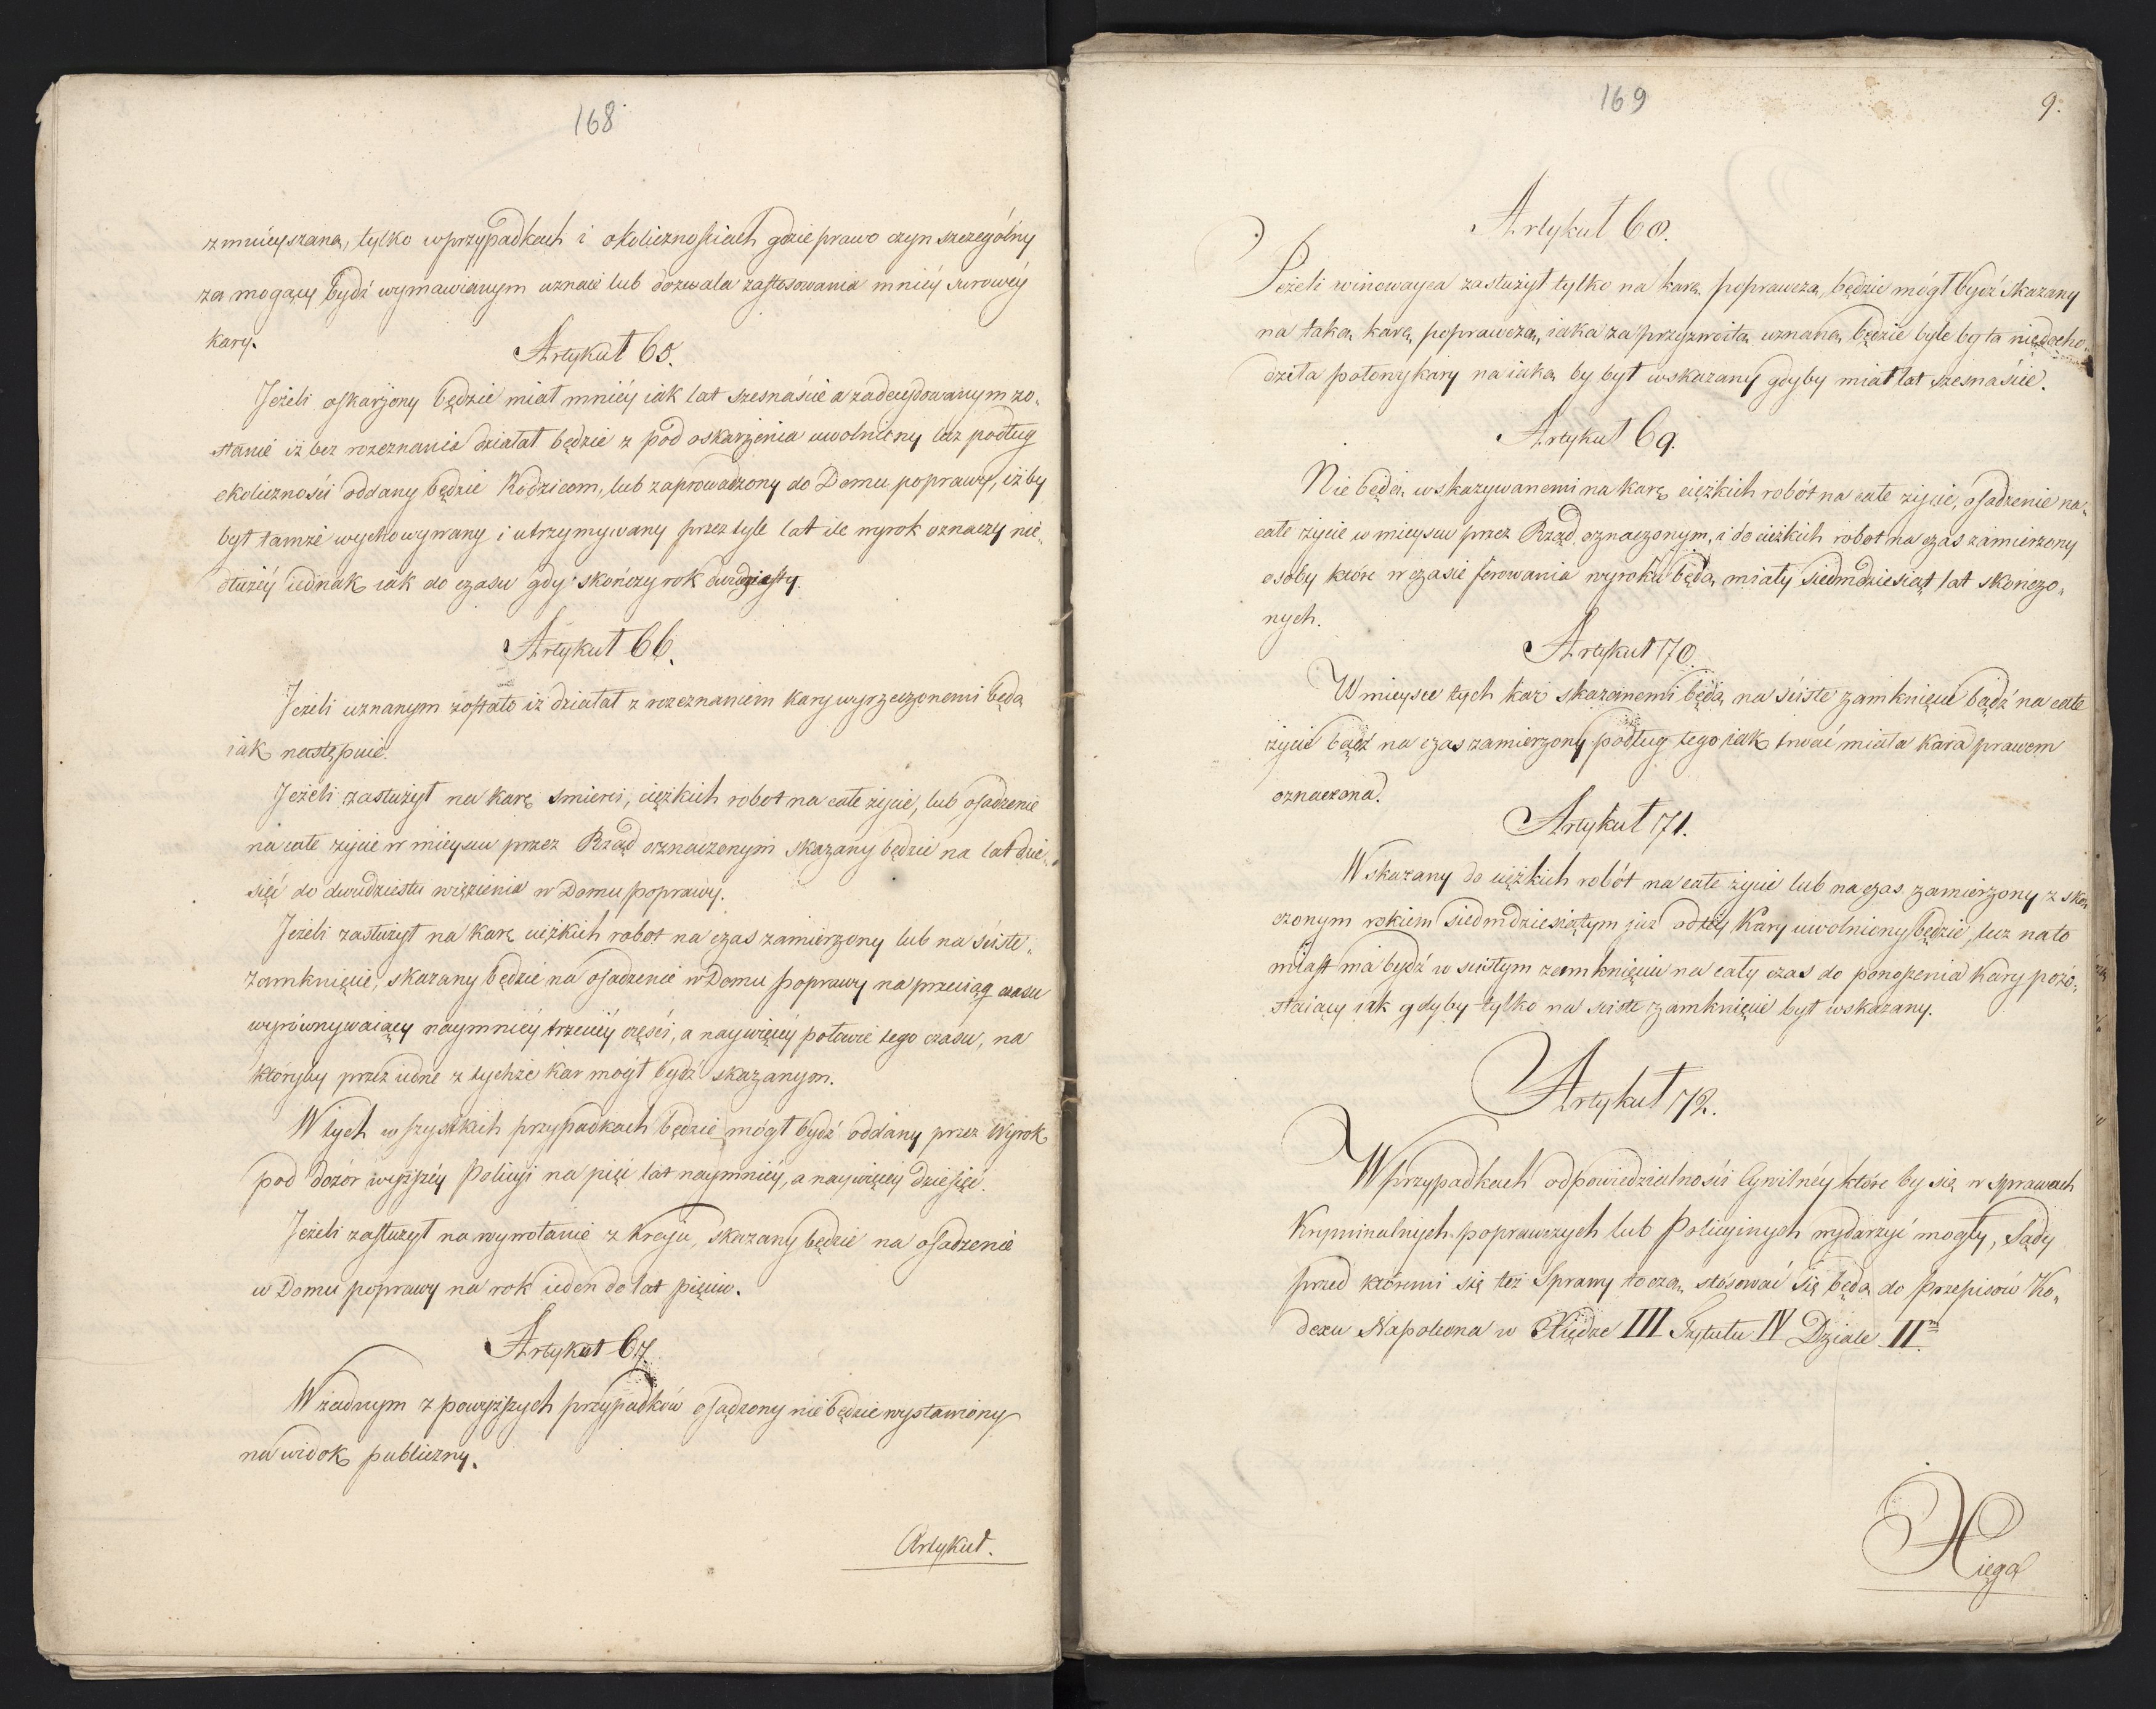 168
zmnieyszaną, tylko w przypadkach i okolicznościach gdzie prawo czyn szczególny
za mogący bydź wymawianym uznaie lub dozwala zastosowania mniéy surowéy
kary.
Artykuł 65.
Jeżeli oskarżony będzie miał mniéy iak lat szesnaście a zadecydowanym zo„
stanie iż bez rozeznania działał będzie z pod oskarżenia uwolniony lecz podług
okoliczności oddany będzie Rodzicom, lub zaprowadzony do Domu poprawy, iżby
był tamże wychowywany i utrzymywany przez tyle lat ile wyrok oznaczy nie„
dłużéy iednak iak do czasu gdy skończy rok dwudziesty.
Artykuł 66.
Jeżeli uznanym zostało iż działał z rozeznaniem kary wyrzeczonemi będą
iak następuie.
Jeżeli zasłużył na karę śmierci, ciężkich robot na całe życie, lub osadzenie
na całe życie w mieyscu przez Rząd oznaczonym skazany będzie na lat dzie„
sięć do dwudziestu więzienia w Domu poprawy.
Jeżeli zasłużył na karę ciężkich robot na czas zamierzony lub na ścisłe„
zamknięcie, skazany będzie na osadzenie w Domu poprawy na przeciąg czasu
wyrównywaiący naymniéy trzeciéy części, a naywięcéy połowie tego czasu, na
któryby przez iedne z tychże kar mógł bydź skazanym.
W tych wszystkich przypadkach będzie mógł bydź oddany przez Wyrok
pod dozór wyższéy Policyi na pięć lat naymniéy, a naywięcéy dziesięć.
Jeżeli zasłużył na wywołanie z kraju, skazany będzie na osadzenie
w Domu poprawy na rok ieden do lat pięciu.
Artykuł 67.
W żadnym z powyższych przypadków osądzony nie będzie wystawiony
na widok publiczny.
Artykuł.
169
9.
Artykuł 68.
Jeżeli winowayca zasłużył tylko na karę poprawczą, będzie mógł bydź skazany
na taką karę poprawczą, iaka za przyzwoitą uznaną będzie byle by ta niedocho„
dziła połowy kary na iaką by był wskazany gdyby miał lat szesnaście.
Artykuł 69.
Nie będą wskazywanemi na karę ciężkich robót na całe życie, osadzenie na„
całe życie w mieyscu przez Rząd oznaczonym, i do ciężkich robot na czas zamierzony
osoby które w czasie ferowania wyroku będą miały siedmdziesiąt lat skończo„
nych.
Artykuł 70.
W mieysce tych kar skazanemi będą na ścisłe zamknięcie bądź na całe
życie bądź na czas zamierzony podług tego iak trwać miała kara prawem
oznaczona.
Artykuł 71.
Wskazany do ciężkich robót na całe życie lub na czas zamierzony z skoń
czonym rokiem siedmdziesiątym już od téy Kary uwolniony będzie, lecz nato
miast ma bydź w ścisłym zamknięciu na cały czas do ponoszenia Kary pozo„
staiący iak gdyby tylko na ścisłe zamknięcie był wskazany.
Artykuł 72.
W przypadkach odpowiedzialności Cywilnéy które by się w sprawach
Kryminalnych poprawczych lub Policyinych wydarzyć mogły, Sądy
przed któremi się też Sprawy toczą, stósować się będą do przepisów Ko„
dexu Napoleona w Xiędze III Tytułu IV Dziale II<sup>m</sup>.
Xięga